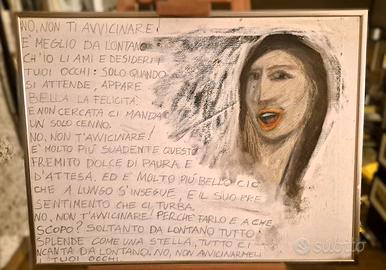 NO, NON TI AVVICINARE!
È MEGLIO DA LONTANO
CH'IO LI AMI E DESIDERI I
TUOI OCCHI: SOLO QUANDO
SI ATTENDE, APPARE
BELLA LA FELICITÀ.
E NON CERCATA CI MANDA
UN SOLO CENNO.
NO, NON T'AVVICINARE!
E' MOLTO PIÙ SUADENTE QUESTO
FREMITO DOLCE DI PAURA E
D'ATTESA. ED E' MOLTO PIÙ BELLO CIÒ
CHE A LUNGO S'INSEGUE, E IL SUO PRE
SENTIMENTO CHE CI TURBA.
NO, NON T'AVVICINARE! PERCHÉ FARLO E A CHE
SCOPO? SOLTANTO DA LONTANO TUTTO
SPLENDE COME UNA STELLA, TUTTO CI
INCANTA DA LONTANO. NO, NON AVVICINARMELI
I TUOI OCCHI.
subito